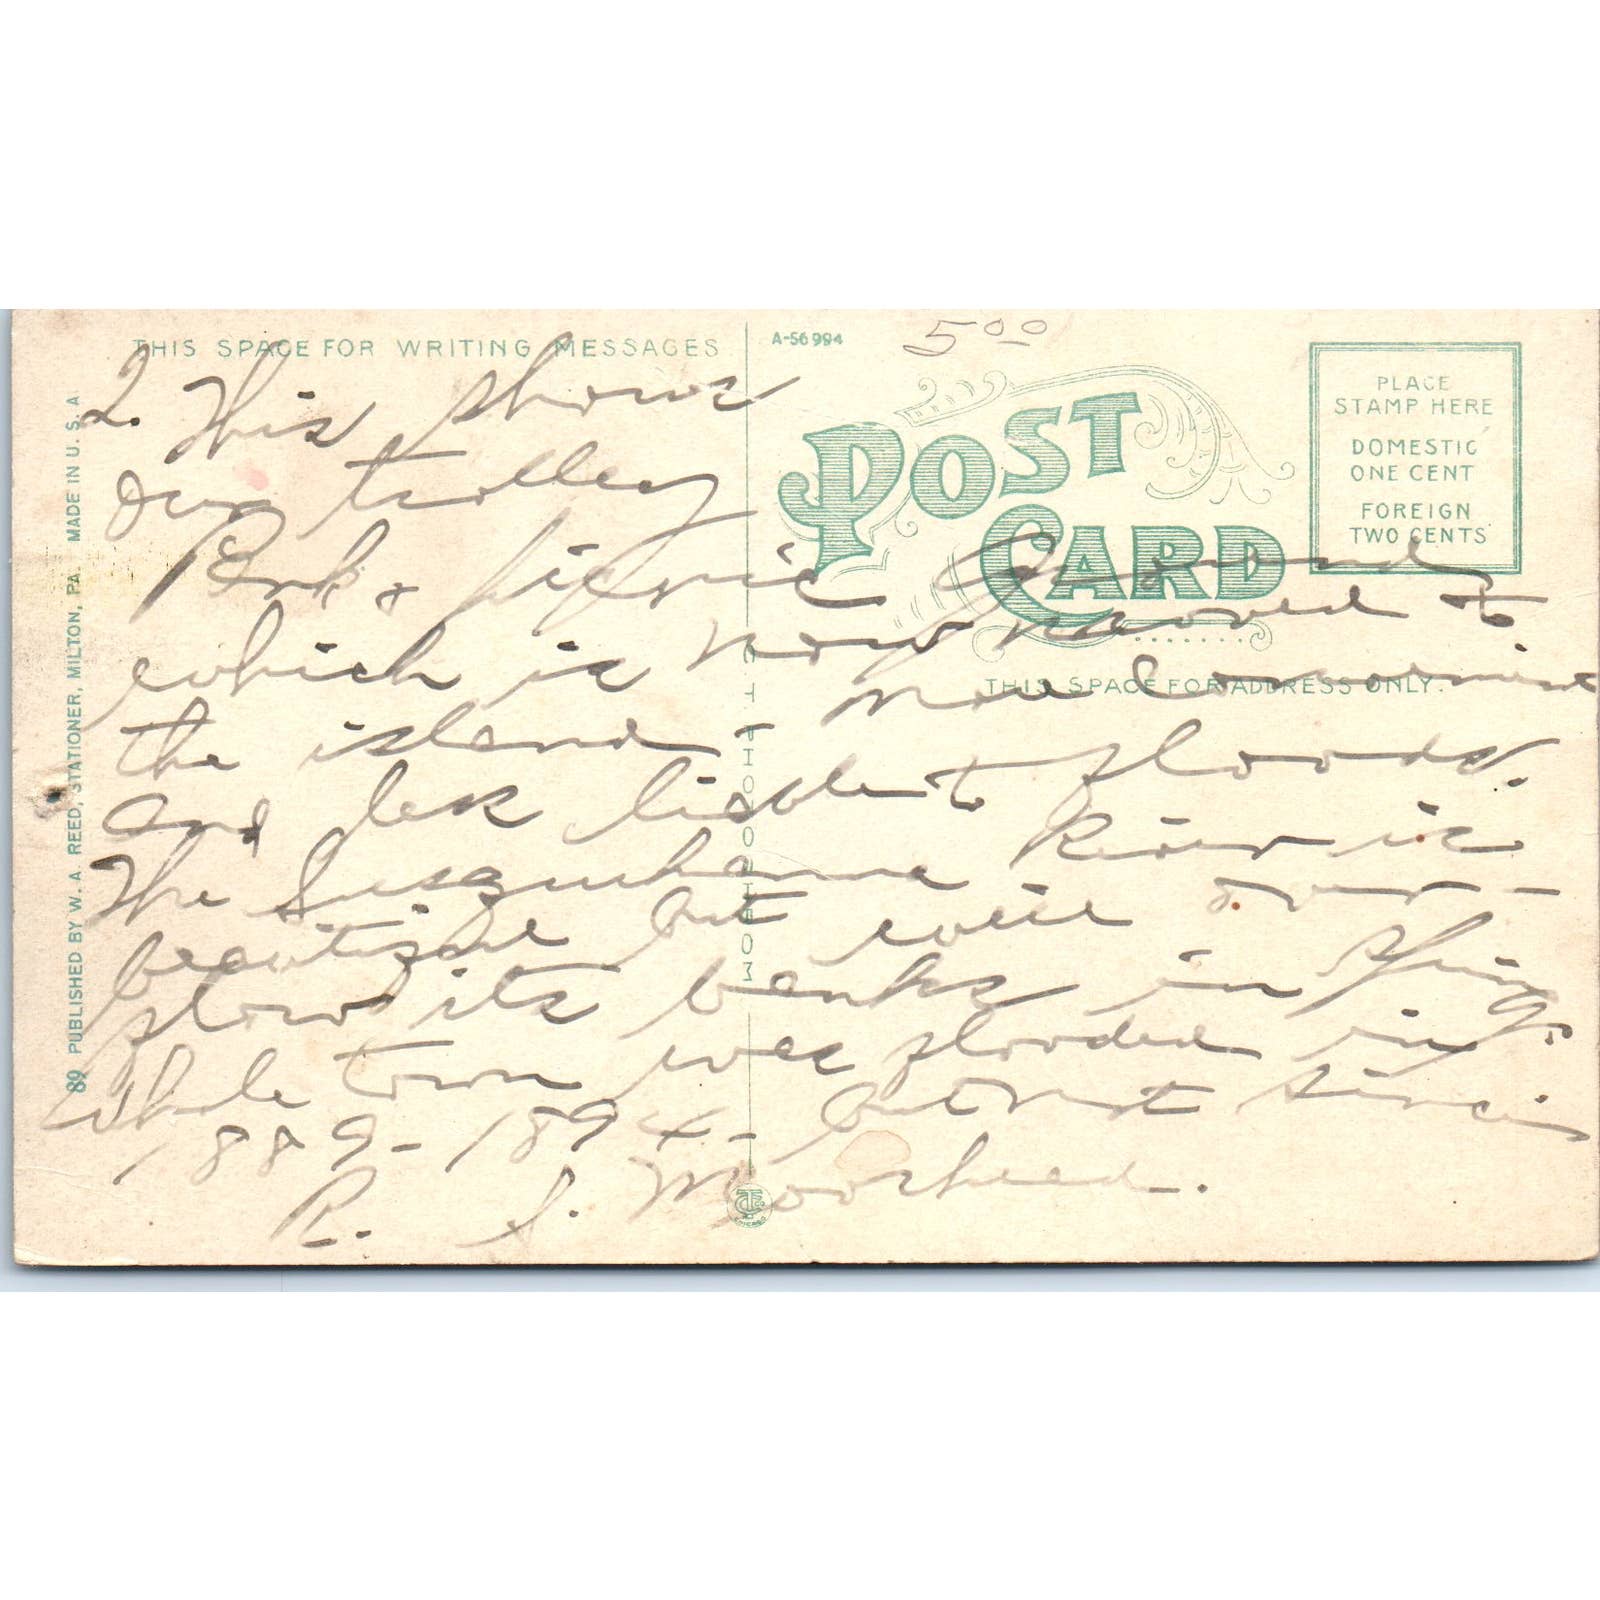 THIS SPACE FOR WRITING MESSAGES
A-56994
5 00
POST CARD
PLACE
STAMP HERE
DOMESTIC
ONE CENT
FOREIGN
TWO CENTS
THIS SPACE FOR ADDRESS ONLY.
2. This shows
our trolley
Park & picnic ground
which is now moved to
the island - more convenient
and less liable to floods.
The Susquehanna River is
beautiful but will over-
flow its banks in Spring.
Whole town was flooded in
1889-1894- but not since
R. S. Moorhead.
89 PUBLISHED BY W. A. REED, STATIONER, MILTON, PA. MADE IN U. S. A
C T PHOTOCHROM